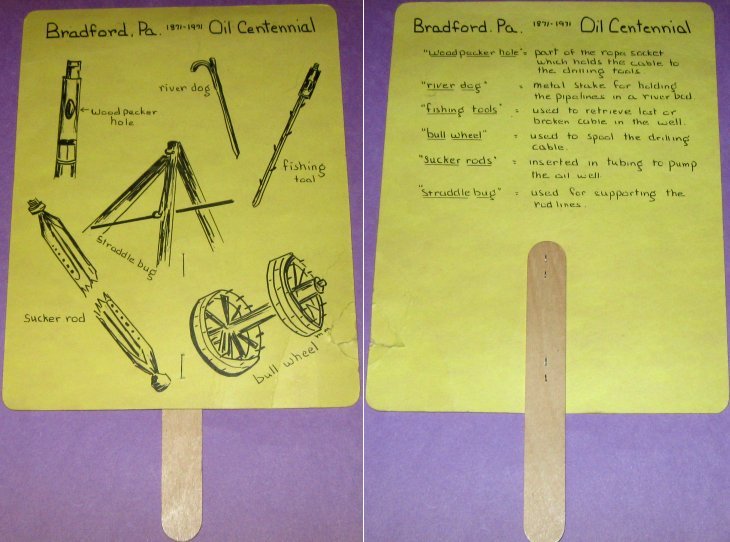 Bradford, Pa. 1871-1971 Oil Centennial
river dog
←Woodpecker
hole
fishing
tool
Straddle bug
Sucker rod
bull wheel
Bradford, Pa. 1871-1971 Oil Centennial
"Woodpecker hole" = part of the rope socket
which holds the cable to
the drilling tools.
"river dog" = metal stake for holding
the pipelines in a river bed.
"fishing tools" = used to retrieve lost or
broken cable in the well.
"bull wheel" = used to spool the drilling
cable.
"Sucker rods" = inserted in tubing to pump
the oil well.
"Straddle bug" = used for supporting the
rod lines.